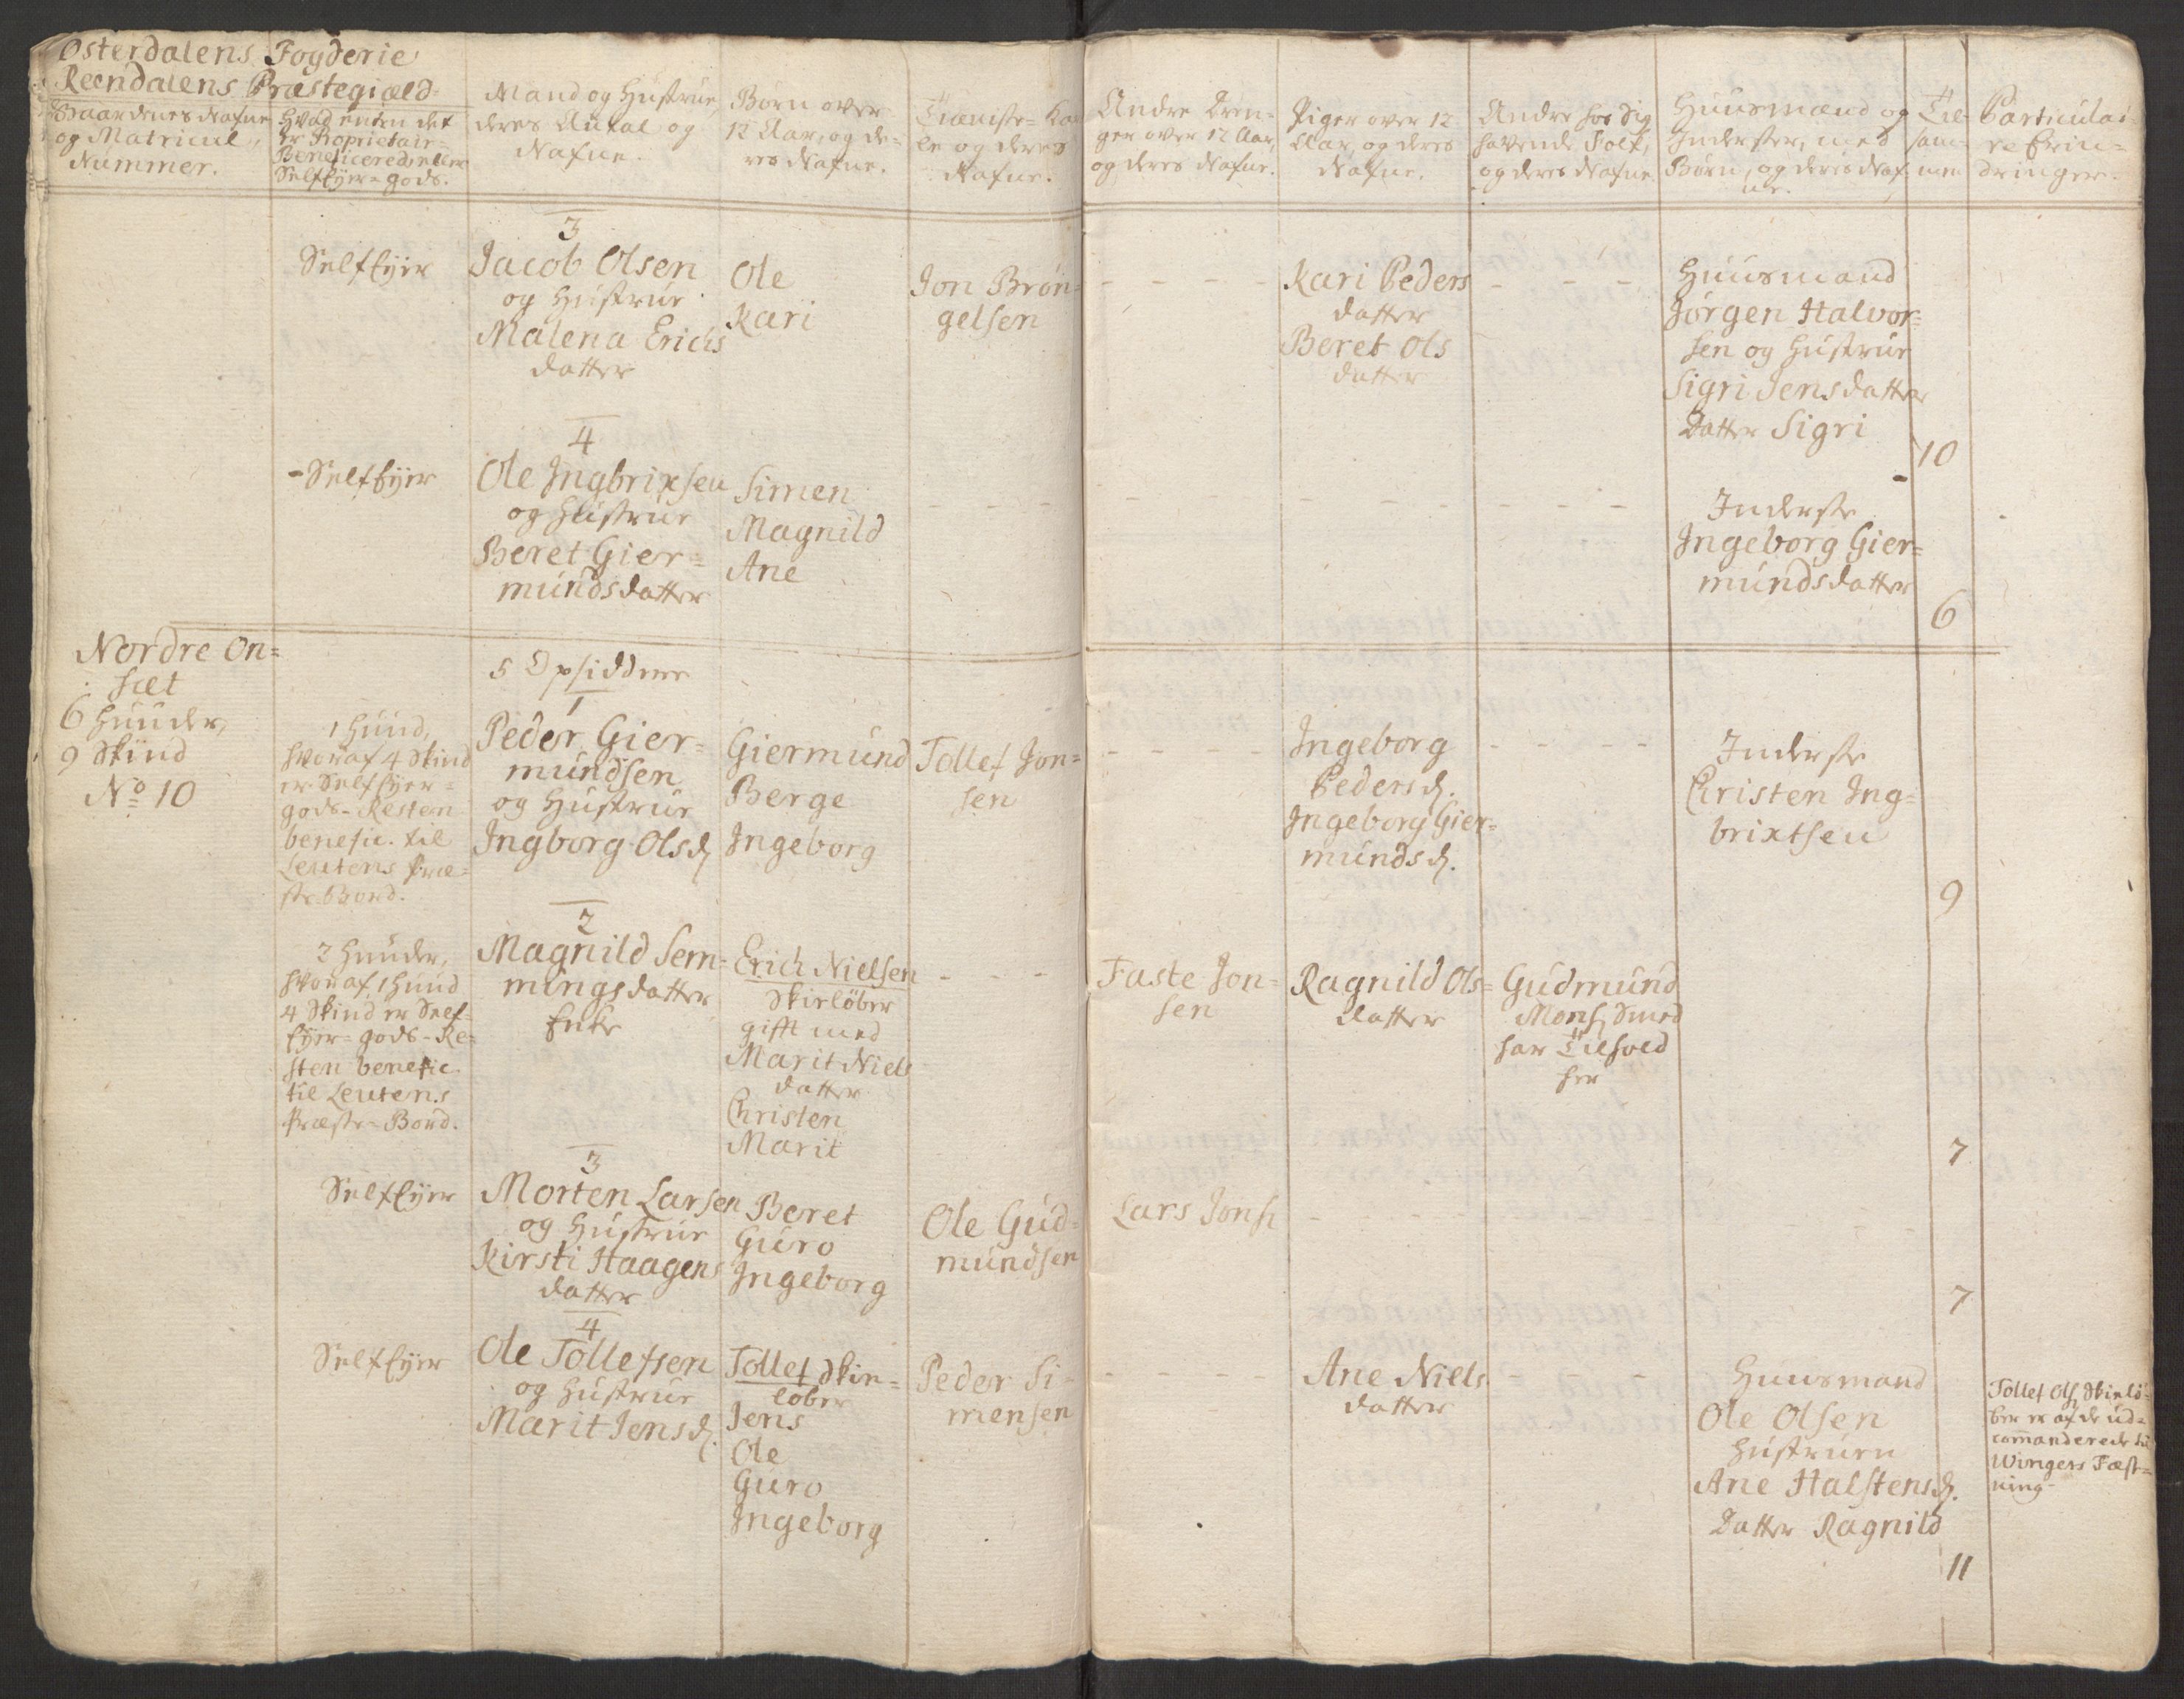 Osterdalens Fogderie
Reendalens Præstegiæld
Gaardenes Nafne
og Matricul
Nummer.
Hvad enten det
Er Proprietair-
Beneficered, eller
SelfEyer-gods.
Mand og Hustrue
deres Antal og
Nafne.
Børn over
12 Aar, og de-
res Nafne.
Tieniste-Ka
le og deres
Nafne.
Andre Dren-
ger over 12 Aar,
og deres Nafne.
Piger over 12
Aar, og deres
Nafne.
Andre hos Sig
havende Folk,
og deres Nafne
Huusmænd og
Inderster, med
Børn, og deres Naf-
ne.
Til
sam-
men
Particulai-
re Erin-
dringer.
3
SelfEyer
Jacob Olsen
og Hustrue
Malena Erichs
datter
Ole
Kari
Jon Brøn-
gelsen
Kari Peders
datter
Beret Ols
datter
Huusmand
Jørgen Halvor-
sen og Hustrue
Sigri Jensdatter
Datter Sigri
10
4
SelfEyer
Ole Ingbrixsen
og Hustrue
Beret Gier-
mundsdatter
Simen
Magnild
Ane
Inderste
Ingeborg Gier-
mundsdatter
6
Nordre On-
sæt
6 Hunder,
9 Skind
No 10
5 Opsiddere
1
1 Hund,
hvoraf 4 Skind
er SelfEyer-
gods-Resten
benefic. til
Leutens Præ-
ste Bord.
Peder Gier-
mundsen
og Hustrue
Ingborg Olsd.
Giermund
Berge
Ingeborg
Tollef Jon-
sen
Ingeborg
Pedersd.
Ingeborg Gier-
mundsd.
Inderste
Christen Ing-
brixtsen
9
2
2 Hunder,
hvoraf 1 Hund
4 Skind er Self-
Eyer-gods-Re-
sten benefic
til Leutens
Præste-Bord.
Magnild Sem-
mingsdatter
Enke
Erich Nielsen
Skielöber
gift med
Marit Niels
datter
Christen
Marit
Faste Jon-
sen
Ragnild Ols-
datter
Gudmund
Mons. Smed
har Tilhold
her
7
3
SelfEyer
Morten Larsen
og Hustrue
Kirsti Haagens
datter
Beret
Guro
Ingeborg
Ole Gud-
mundsen
Lars Jons.
7
4
SelfEyer
Ole Tollefsen
og Hustrue
Marit Jensd.
Tollef Skie-
løber
Jens
Ole
Guro
Ingeborg
Peder Si-
mensen
Ane Niels
datter
Huusmand
Ole Olsen
Hustruen
Ane Halstensd.
Datter Ragnild
11
Tollef Ols. Skielö-
ber er af de ud-
commanderede til
Wingers Fæst-
ning